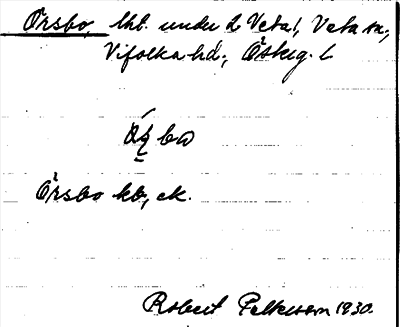 Örsbo, lht. under 2 Veta!, Veta sn,
Vifolka hd; Östeg. l
bo
Örsbo kb, ek.
Robert Petterson 1930.